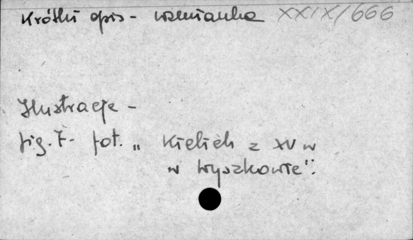 Krótki opis - wzmianka XXIX/666
Ilustracje -
fig. 7. fot. „Kielich z XV w
w Wyszkowie".